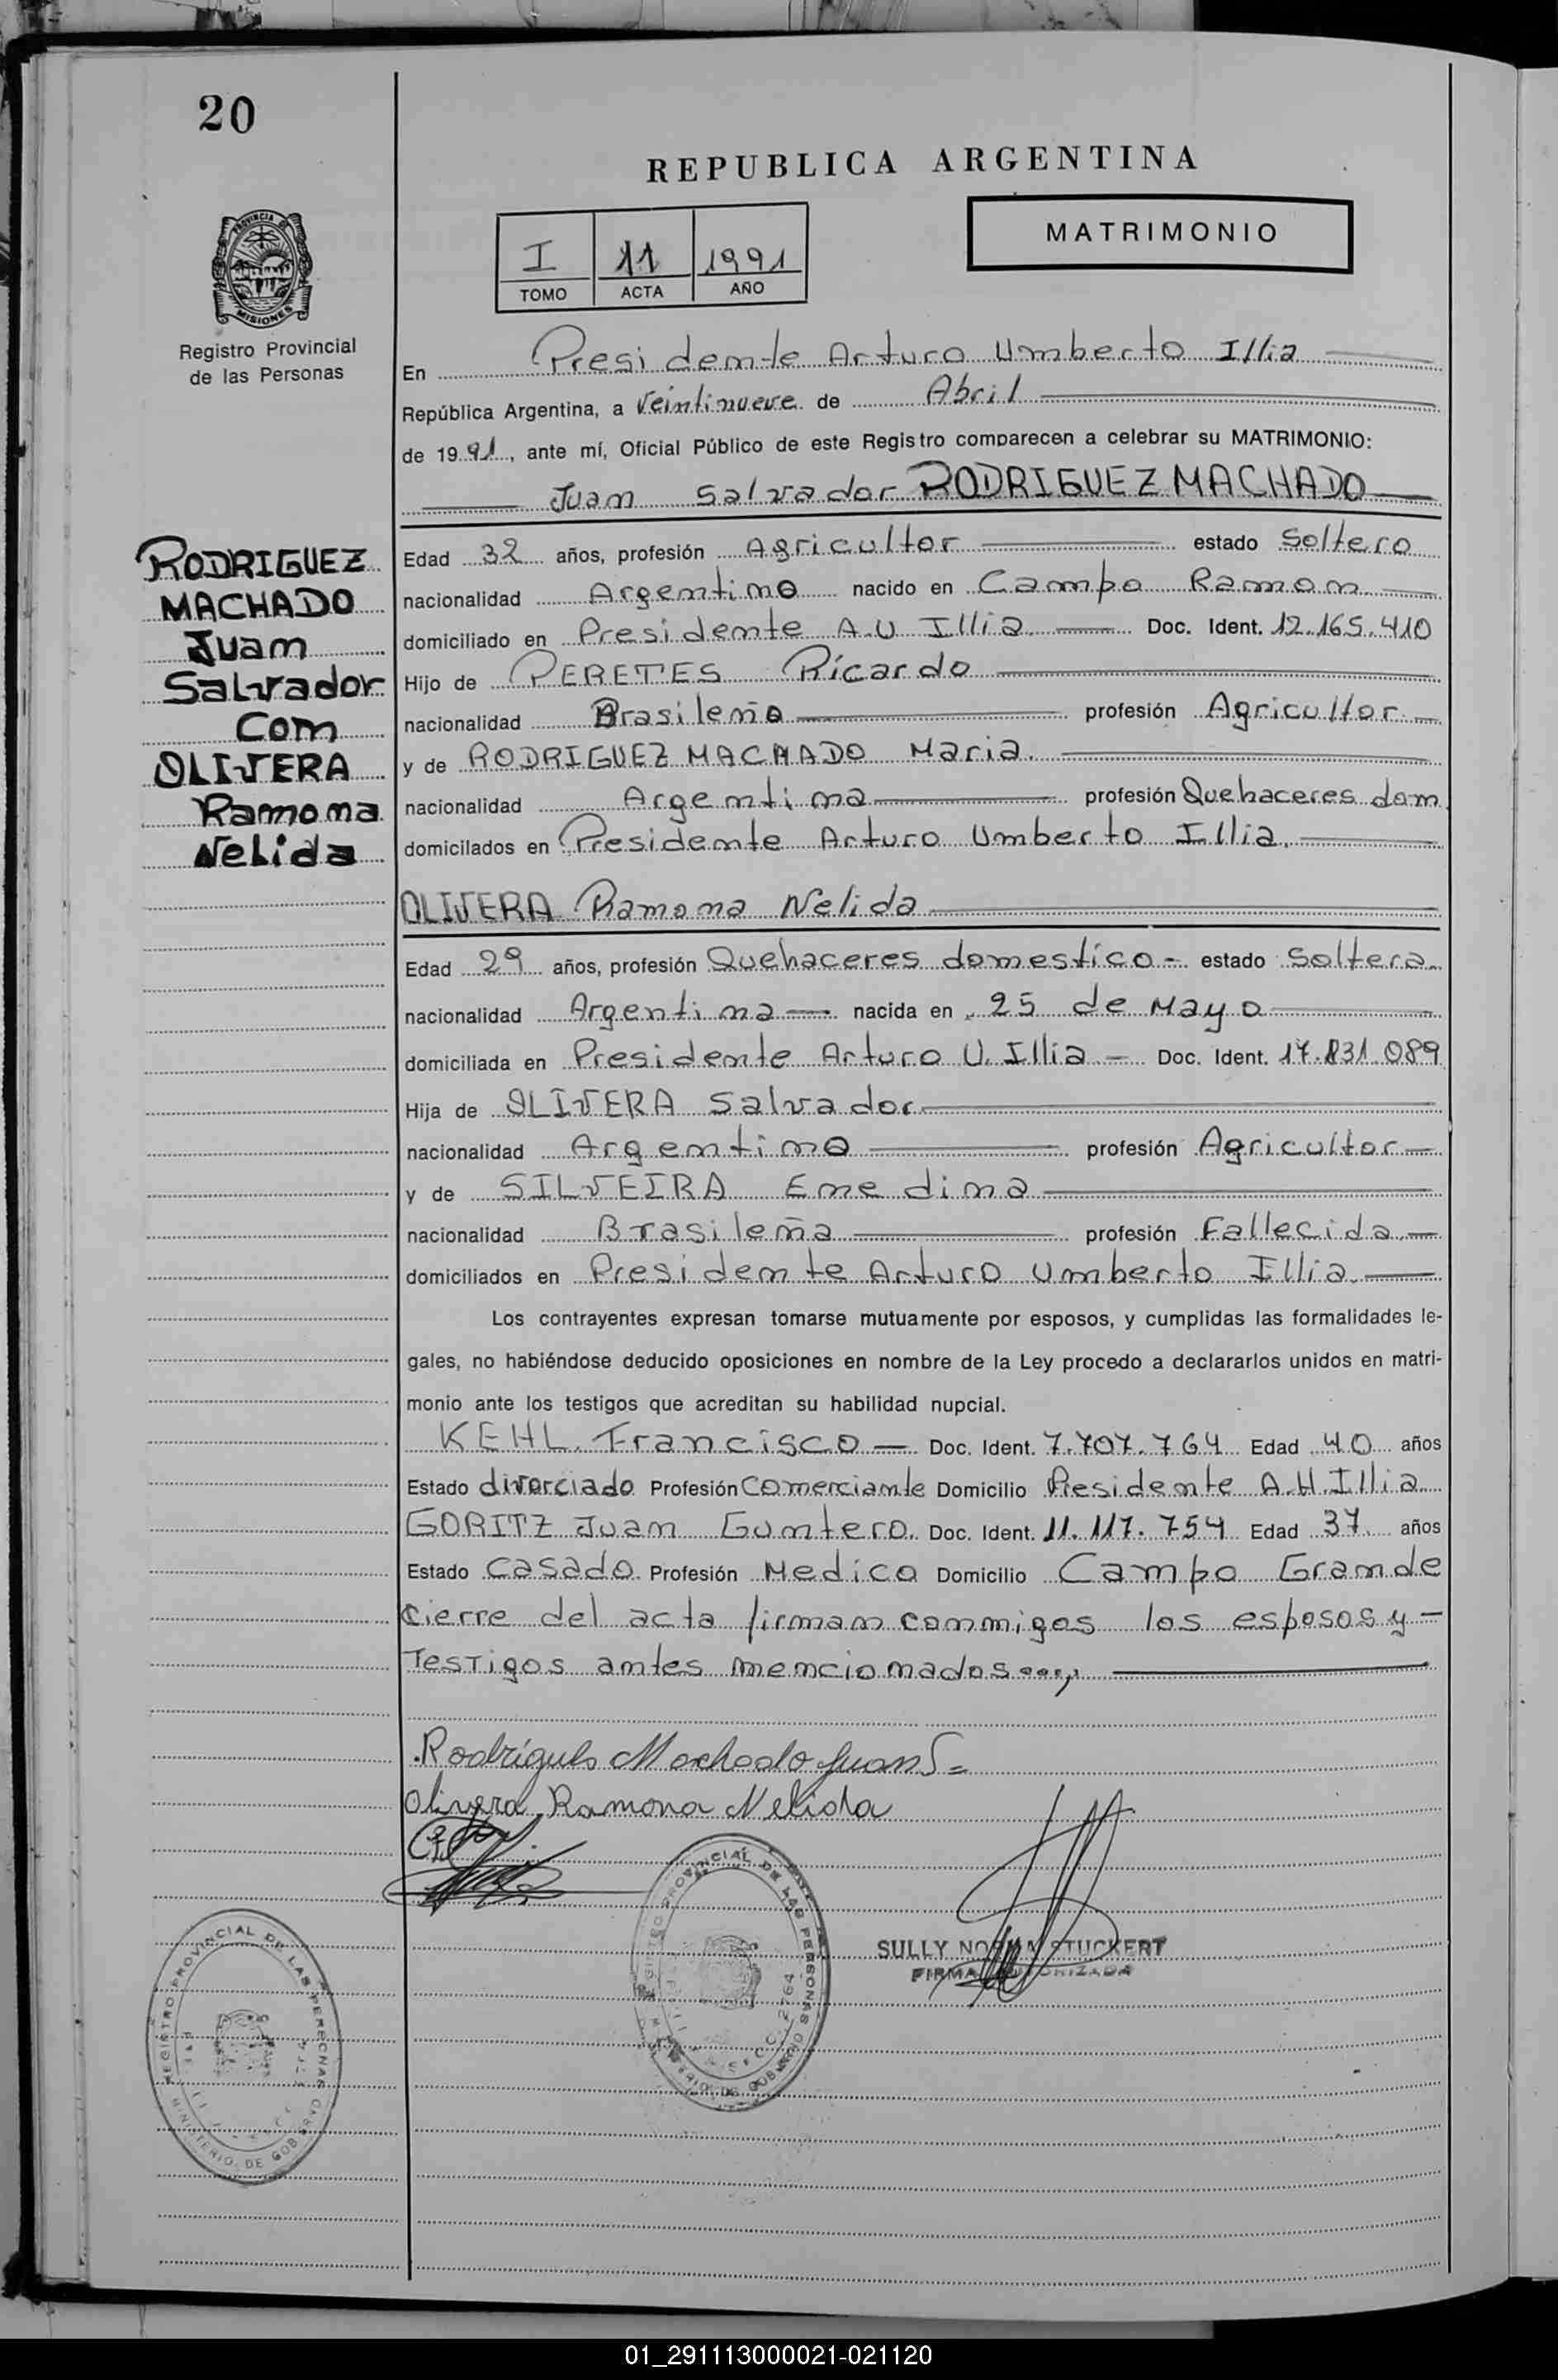 20
REPUBLICA ARGENTINA
MATRIMONIO
I 11 1991
TOMO ACTA AÑO
PROVINCIA DE
MISIONES
Registro Provincial
de las Personas
En Presidente Arturo Umberto Illia
República Argentina, a veintinueve de Abril
de 1991, ante mí, Oficial Público de este Registro comparecen a celebrar su MATRIMONIO:
Juan Salvador RODRIGUEZ MACHADO
RODRIGUEZ
MACHADO
Juan
Salvador
Con
OLIVERA
Ramona
Nelida
Edad 32 años, profesión Agricultor estado Soltero
nacionalidad Argentino nacido en Campo Ramon
domiciliado en Presidente A.U Illia Doc. Ident. 12.165.410
Hijo de PERETES Ricardo
nacionalidad Brasileño profesión Agricultor
y de RODRIGUEZ MACHADO Maria.
nacionalidad Argentina profesión Quehaceres dom
domicilados en Presidente Arturo Umberto Illia.
OLIVERA Ramona Nelida
Edad 29 años, profesión Quehaceres domestico - estado Soltera
nacionalidad Argentina nacida en 25 de Mayo
domiciliada en Presidente Arturo U. Illia - Doc. Ident. 17.831.089
Hija de OLIVERA Salvador
nacionalidad Argentino profesión Agricultor
y de SILVEIRA Enedina
nacionalidad Brasileña profesión Fallecida
domiciliados en Presidente Arturo Umberto Illia.
Los contrayentes expresan tomarse mutuamente por esposos, y cumplidas las formalidades le-
gales, no habiéndose deducido oposiciones en nombre de la Ley procedo a declararlos unidos en matri-
monio ante los testigos que acreditan su habilidad nupcial.
KEHL Francisco - Doc. Ident. 7.707.764 Edad 40 años
Estado divorciado Profesión Comerciante Domicilio Presidente A.H. Illia
GORITZ Juan Guntero. Doc. Ident. 11.117.754 Edad 37 años
Estado casado Profesión Medico Domicilio Campo Grande
Cierre del acta firman conmigos los esposos y -
Testigos antes mencionados...,
Rodrígues Machado Juan S=
Olivera Ramona Nelida
SULLY NORMA STUCKERT
FIRMA AUTORIZADA
REGISTRO PROVINCIAL DE LAS PERSONAS
MINISTERIO DE GOBIERNO
REGISTRO PROVINCIAL DE LAS PERSONAS
MINISTERIO DE GOBIERNO
01_291113000021-021120